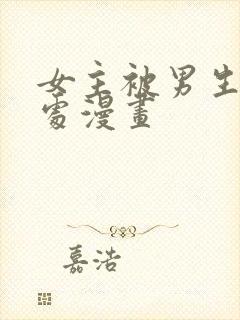 女主被男生
處漫畫
嘉浩